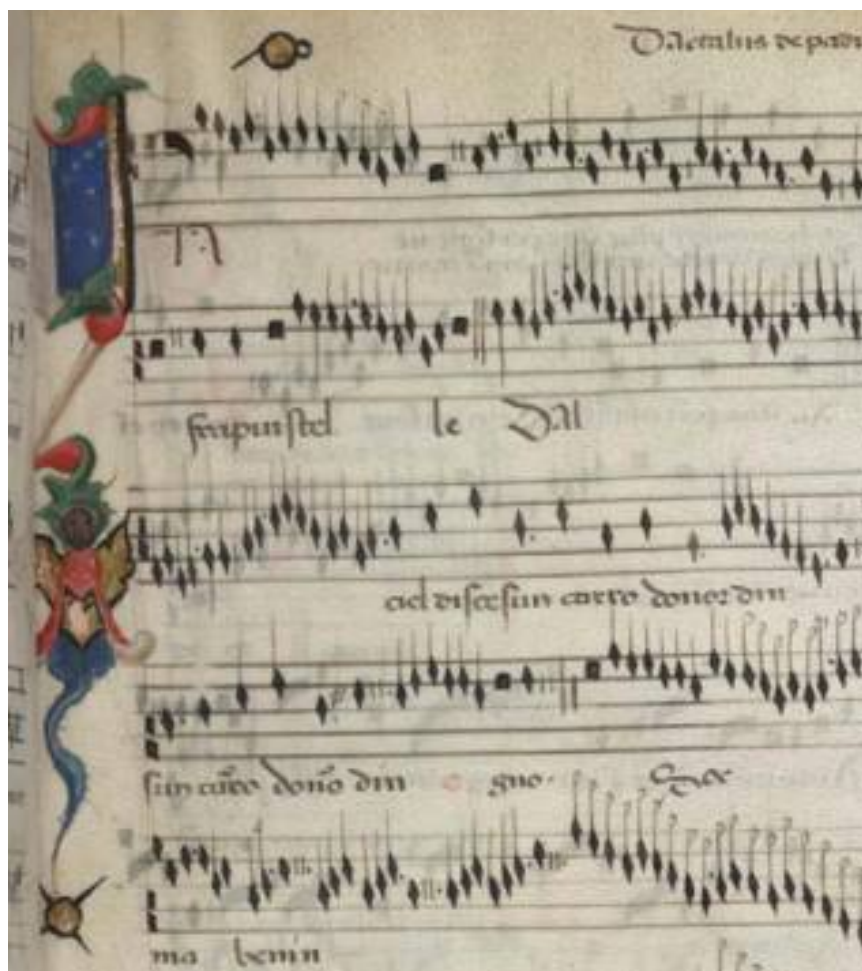 Dactalus de padu
frapiustel. le Dal
ciel discesun carro donor din
sun carro dono din gno.
ma benin